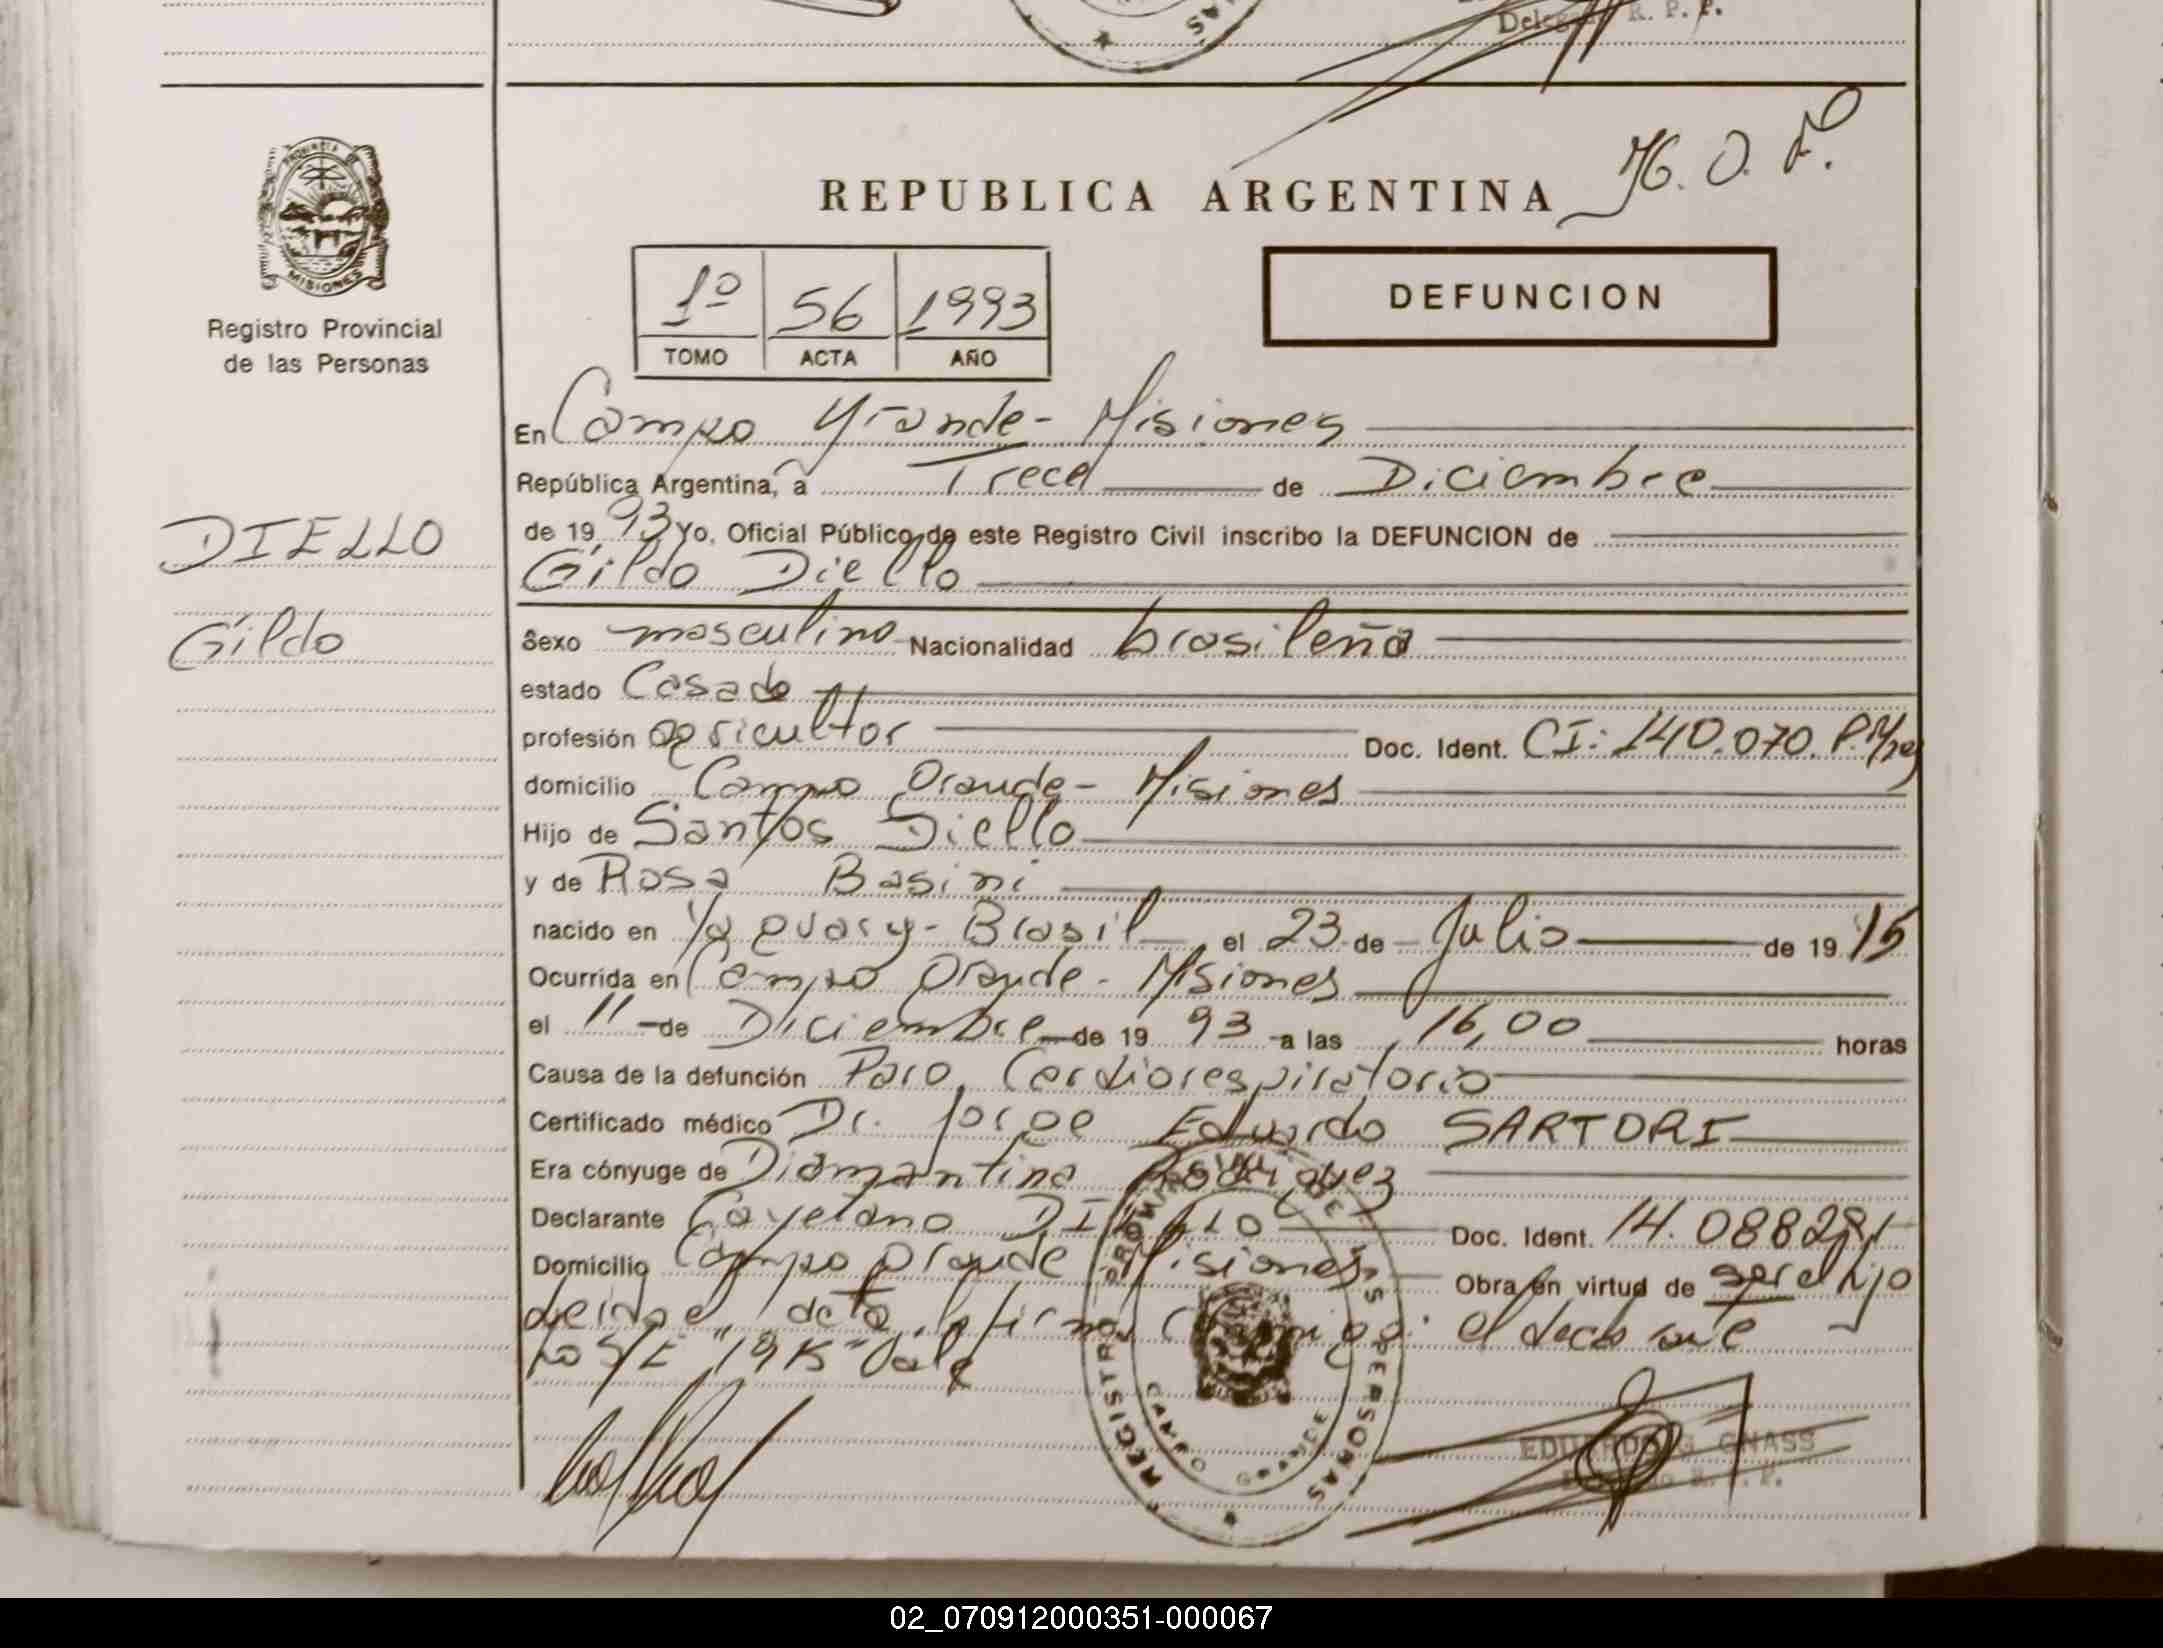 Delegado R. P. P.
PROVINCIA DE MISIONES
Registro Provincial
de las Personas
REPUBLICA ARGENTINA
1º 56 1993
TOMO ACTA AÑO
DEFUNCION
En Campo Grande - Misiones
República Argentina, a Trece de Diciembre
de 19 93 Yo, Oficial Público de este Registro Civil inscribo la DEFUNCION de
Gildo Diello
DIELLO
Gildo
Sexo masculino Nacionalidad brasileña
estado Casado
profesión agricultor Doc. Ident. CI: 140.070. P.
domicilio Campo Grande - Misiones
Hijo de Santos Diello
y de Rosa Basini
nacido en Yaguary - Brasil el 23 de Julio de 19 15
Ocurrida en Campo Grande - Misiones
el 11 de Diciembre de 19 93 a las 16,00 horas
Causa de la defunción Paro Cardiorespiratorio
Certificado médico Dr. Jorge Eduardo SARTORI
Era cónyuge de Diamantina Rodriguez
Declarante Cayetano DIELLO Doc. Ident. 14.088281
Domicilio Campo Grande Misiones Obra en virtud de ser el hijo
Leida el acta, firma conmigo: el declarante
"1915" Vale
REGISTRO PROVINCIAL DE LAS PERSONAS
CAMPO GRANDE
EDUARDO G. GNASS
Delegado R. P. P.
02_070912000351-000067